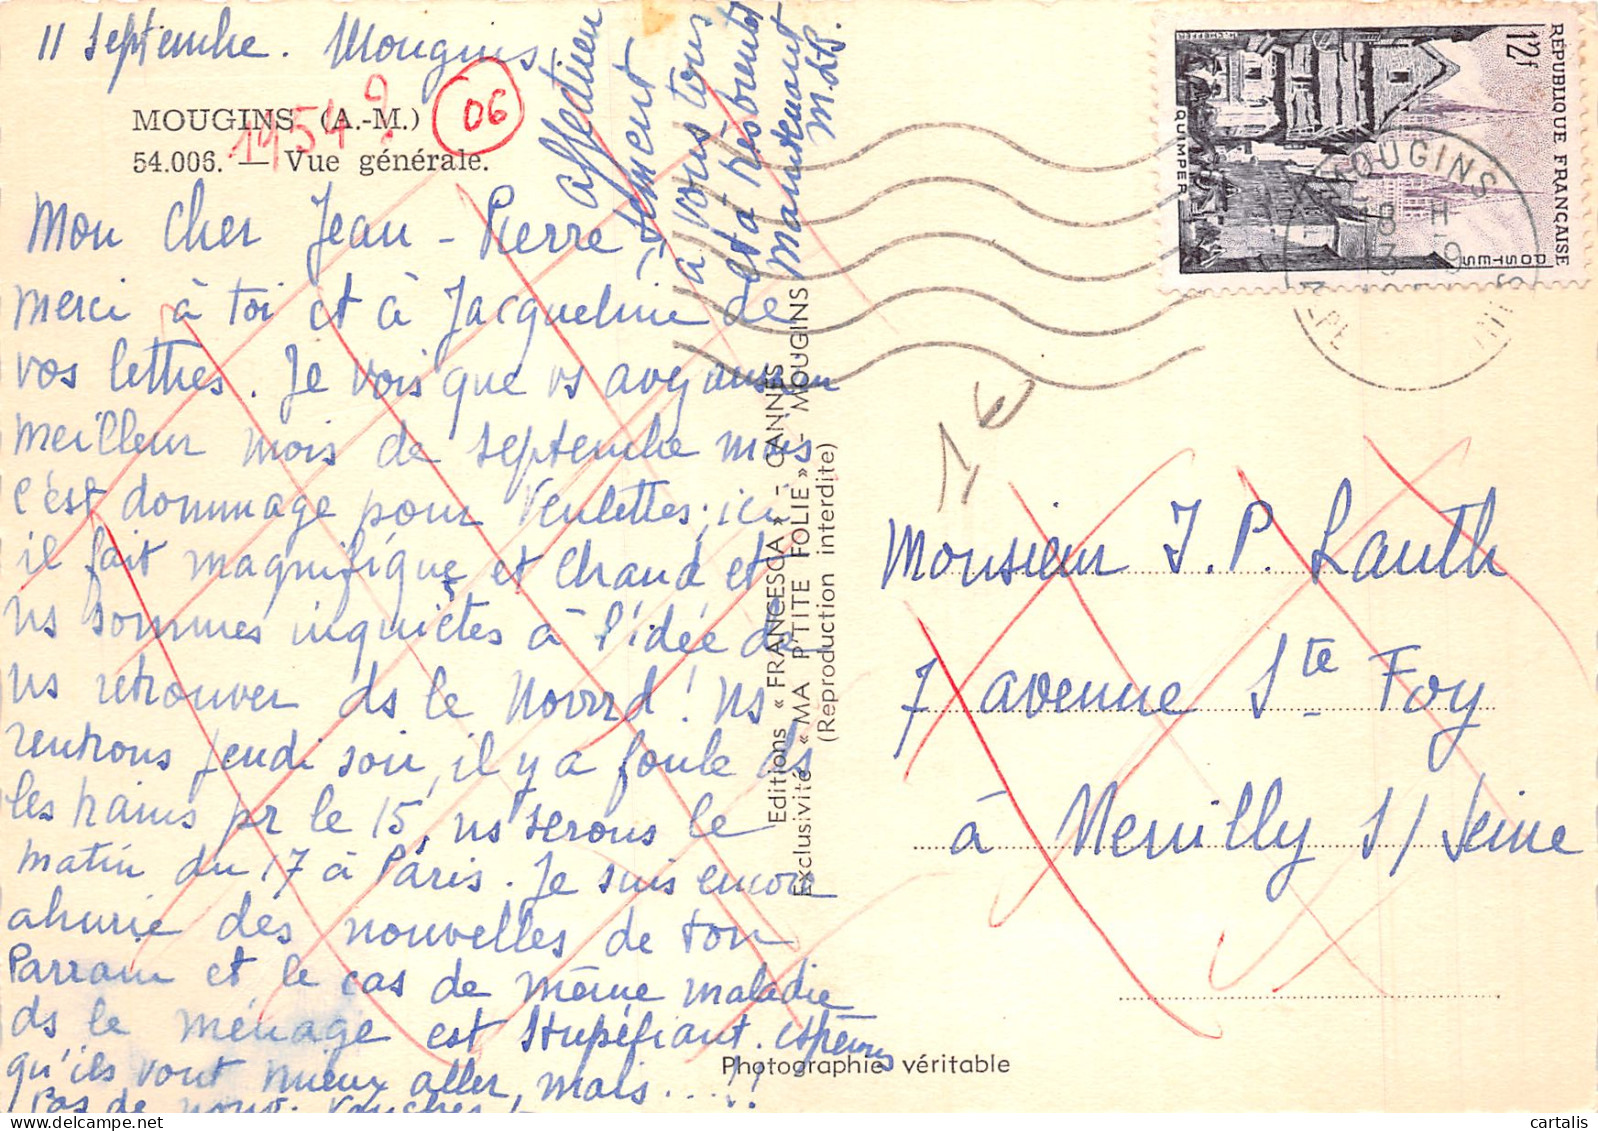 11 Septembre. Mougins
MOUGINS (A.-M.)
54.006. — Vue générale.
1954?
06
Mon cher Jean-Pierre
merci à toi et à Jacqueline de
vos lettres. Je vois que vs avez aussi un
meilleur mois de septembre mais
c'est dommage pour Veulettes; ici
il fait magnifique et chaud et
ns sommes inquiètes à l'idée de
ns retrouver ds le Noorrd! Ns
rentrons jeudi soir, il y a foule ds
les trains pr le 15, ns serons le
matin du 17 à Paris. Je suis encore
ahurie des nouvelles de ton
Parrain et le cas de même maladie
ds le ménage est stupéfiant. espérons
qu'ils vont mieux aller, mais....!!
Pas de
affectueu
sement
à vous tous
et à très bientôt
maintenant
Editions « FRANCESCA » - CANNES
Exclusivité « MA P'TITE FOLIE » - MOUGINS
(Reproduction interdite)
Photographie véritable
RÉPUBLIQUE FRANÇAISE
12f
POSTES
QUIMPER
MOUGINS
18 H
13 - 9
Monsieur J. P. Lauth
7 avenue Ste Foy
à Neuilly s/ Seine
cartalis.com